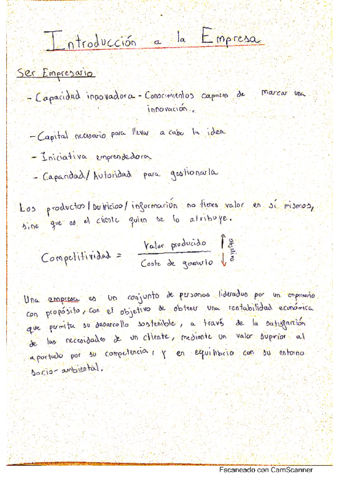 Introducción a la Empresa
Ser Empresario
- Capacidad innovadora - Conocimientos capaces de marcar una
innovación.
- Capital necesario para llevar a cabo la idea
- Iniciativa emprendedora
- Capacidad / Autoridad para gestionarla
Los productos/servicios/información no tienes valor en sí mismos,
sino que es el cliente quien se lo atribuye.
Competitividad = Valor producido ↑
Coste de generarlo ↓
Una empresa es un conjunto de personas lideradas por un empresario
con propósito, con el objetivo de obtener una rentabilidad económica
que permita su desarrollo sostenible, a través de la satisfacción
de las necesidades de un cliente, mediante un valor superior al
aportado por su competencia, y en equilibrio con su entorno
socio-ambiental.
Escaneado con CamScanner